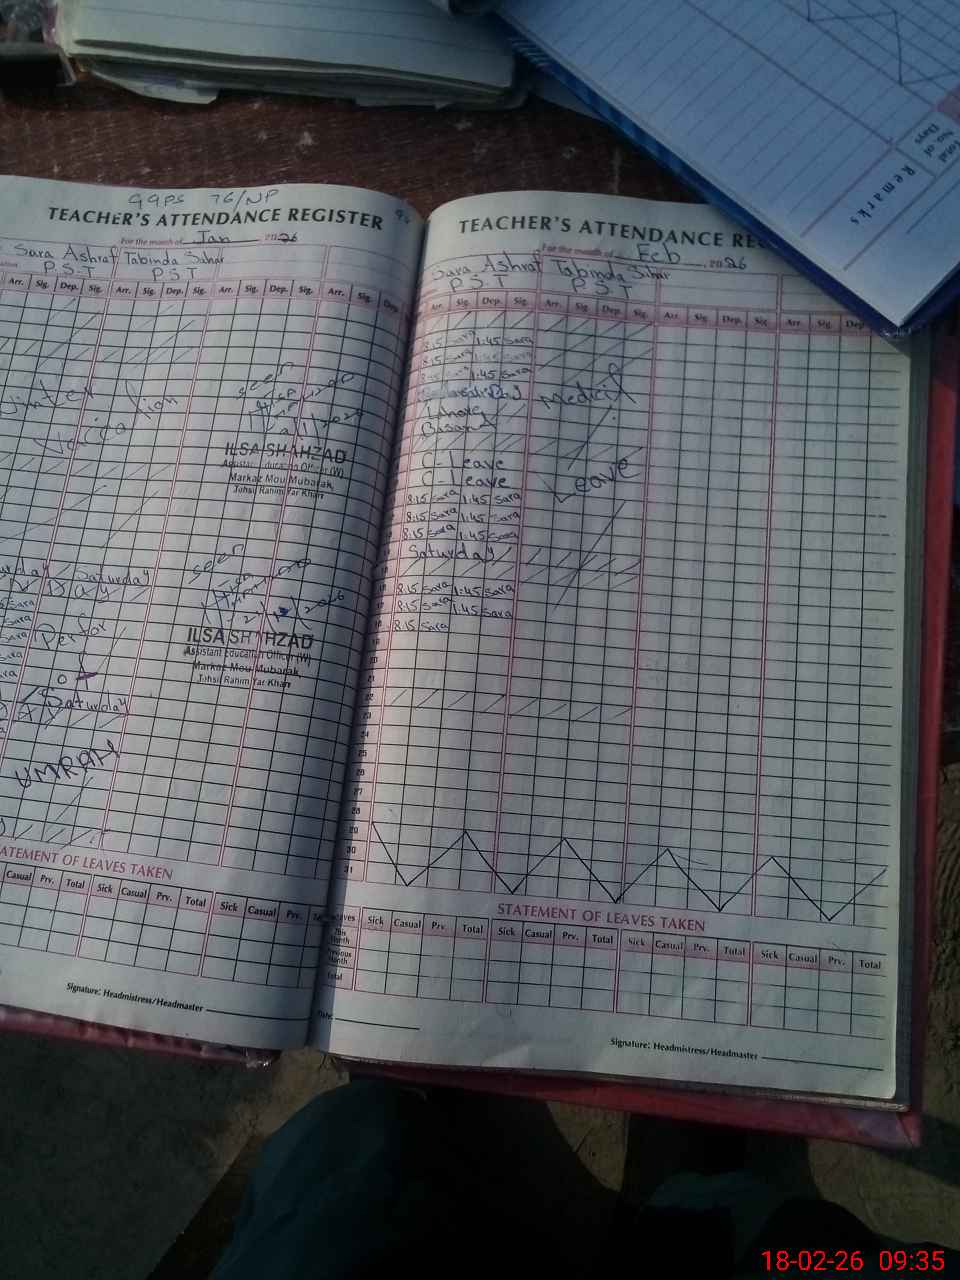 Total
No. of
Days
Remarks
GGPS 76/NP
TEACHER'S ATTENDANCE REGISTER
For the month of Jan 2026
Sara Ashraf Tabinda Sahar
P.S.T P.S.T
Arr. Sig. Dep. Sig. Arr. Sig. Dep. Sig. Arr. Sig. Dep. Sig. Arr. Sig. Dep.
Winter
Vaccation
seen
ILSA SHAHZAD
Assistant Education Officer (W)
Markaz Mou Mubarak,
Tehsil Rahim Yar Khan
seen
ILSA SHAHZAD
Assistant Education Officer (W)
Markaz Mou Mubarak,
Tehsil Rahim Yar Khan
Saturday
Day
Perfor
Saturday
UMRAH
STATEMENT OF LEAVES TAKEN
Casual Prv. Total Sick Casual Prv. Total Sick Casual Prv.
Signature: Headmistress/Headmaster
TEACHER'S ATTENDANCE
For the month of Feb 2026
Sara Ashraf Tabinda Sahar
P.S.T P.S.T
Arr. Sig. Dep. Sig. Arr. Sig. Dep. Sig. Arr. Sig. Dep. Sig. Arr. Sig. Dep
8:15 Sara 1:45 Sara
8:15 Sara 1:45 Sara
8:15 Sara 1:45 Sara
Lahore
Basant
Medical
C-Leave
C-Leave
Leave
8:15 Sara 1:45 Sara
8:15 Sara 1:45 Sara
8:15 Sara 1:45 Sara
Saturday
16 8:15 Sara 1:45 Sara
17 8:15 Sara 1:45 Sara
18 8:15 Sara
19
20
21
22
23
24
25
26
27
28
29
30
31
STATEMENT OF LEAVES TAKEN
Leaves Sick Casual Prv. Total Sick Casual Prv. Total Sick Casual Prv. Total Sick Casual Prv. Total
This Month
Previous Month
Total
Date:
Signature: Headmistress/Headmaster
18-02-26 09:35